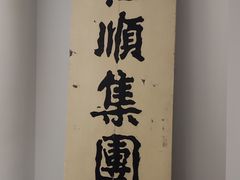 順集團